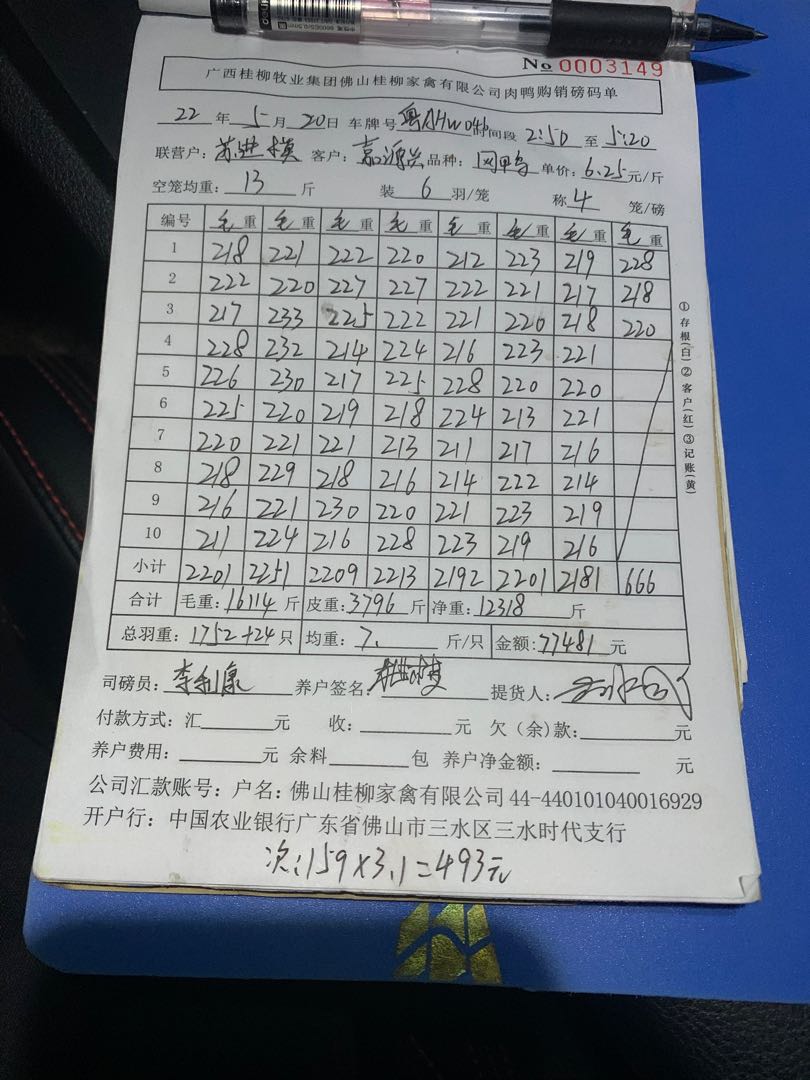 No 0003149
广西桂柳牧业集团佛山桂柳家禽有限公司肉鸭购销磅码单
22 年 5 月 20 日 车牌号 粤AHW046 时间段 2:50 至 5:20
联营户: 客户: 嘉源兴 品种: 单价: 6.25 元/斤
空笼均重: 13 斤 装 6 羽/笼 称 4 笼/磅
编号 毛重 毛重 毛重 毛重 毛重 毛重 毛重 毛重
1 218 221 222 220 212 223 219 228
2 222 220 227 227 222 221 217 218
3 217 233 225 222 221 220 218 220
4 228 232 214 224 216 223 221
5 226 230 217 225 228 220 220
6 225 220 219 218 224 213 221
7 220 221 221 213 211 217 216
8 218 229 218 216 214 222 214
9 216 221 230 220 221 223 219
10 211 224 216 228 223 219 216
小计 2201 2251 2209 2213 2192 2201 2181 666
合计 毛重: 16114 斤 皮重: 3796 斤 净重: 12318 斤
总羽重: 1752+24 只 均重: 7. 斤/只 金额: 77481 元
司磅员: 李利康 养户签名: 提货人:
付款方式: 汇 元 收: 元 欠(余)款: 元
养户费用: 元 余料 包 养户净金额: 元
公司汇款账号: 户名: 佛山桂柳家禽有限公司 44-440101040016929
开户行: 中国农业银行广东省佛山市三水区三水时代支行
次: 159×3.1=493元
①存根(白)②客户(红)③记账(黄)